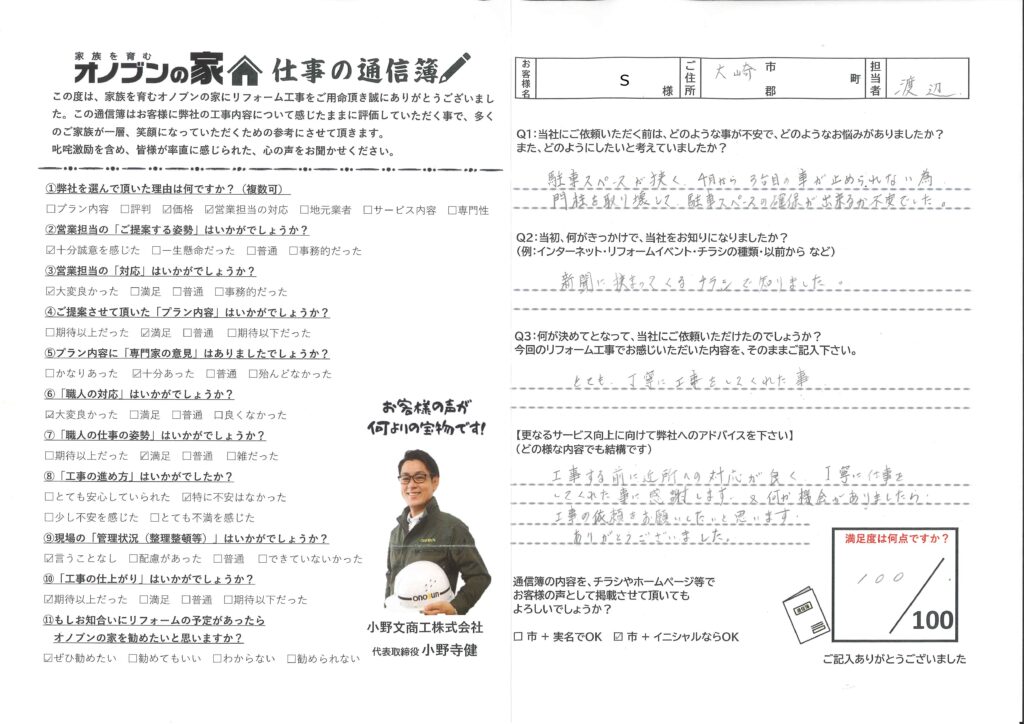 家族を育む
オノブンの家 仕事の通信簿
この度は、家族を育むオノブンの家にリフォーム工事をご用命頂き誠にありがとうございまし
た。この通信簿はお客様に弊社の工事内容について感じたままに評価していただく事で、多く
のご家族が一層、笑顔になっていただくための参考にさせて頂きます。
叱咤激励を含め、皆様が率直に感じられた、心の声をお聞かせください。
①弊社を選んで頂いた理由は何ですか？（複数可）
□プラン内容 □評判 ☑価格 ☑営業担当の対応 □地元業者 □サービス内容 □専門性
②営業担当の「ご提案する姿勢」はいかがでしょうか？
☑十分誠意を感じた □一生懸命だった □普通 □事務的だった
③営業担当の「対応」はいかがでしょうか？
☑大変良かった □満足 □普通 □事務的だった
④ご提案させて頂いた「プラン内容」はいかがでしょうか？
□期待以上だった ☑満足 □普通 □期待以下だった
⑤プラン内容に「専門家の意見」はありましたでしょうか？
□かなりあった ☑十分あった □普通 □殆んどなかった
⑥「職人の対応」はいかがでしょうか？
☑大変良かった □満足 □普通 □良くなかった
⑦「職人の仕事の姿勢」はいかがでしょうか？
□期待以上だった ☑満足 □普通 □雑だった
⑧「工事の進め方」はいかがでしたか？
□とても安心していられた ☑特に不安はなかった
□少し不安を感じた □とても不満を感じた
⑨現場の「管理状況（整理整頓等）」はいかがでしょうか？
☑言うことなし □配慮があった □普通 □できていないかった
⑩「工事の仕上がり」はいかがでしょうか？
☑期待以上だった □満足 □普通 □期待以下だった
⑪もしお知合いにリフォームの予定があったら
オノブンの家を勧めたいと思いますか？
☑ぜひ勧めたい □勧めてもいい □わからない □勧められない
お客様の声が
何よりの宝物です！
ONOBUN
小野文商工株式会社
代表取締役 小野寺健
お客様名 S 様 ご住所 大崎 市 郡 町 担当者 渡辺
Q1：当社にご依頼いただく前は、どのような事が不安で、どのようなお悩みがありましたか？
また、どのようにしたいと考えていましたか？
駐車スペースが狭く、4月から3台目の車が止められない為
門柱を取り壊して、駐車スペースの確保が出来るか不安でした。
Q2：当初、何がきっかけで、当社をお知りになりましたか？
（例：インターネット・リフォームイベント・チラシの種類・以前から など）
新聞に挟まってくるチラシで知りました。
Q3：何が決めてとなって、当社にご依頼いただけたのでしょうか？
今回のリフォーム工事でお感じいただいた内容を、そのままご記入下さい。
とても、丁寧に工事をしてくれた事
【更なるサービス向上に向けて弊社へのアドバイスを下さい】
（どの様な内容でも結構です）
工事する前に近所への対応が良く、丁寧に仕事を
してくれた事に感謝します。又何か機会がありましたら
工事の依頼をお願いしたいと思います。
ありがとうございました。
満足度は何点ですか？
100
100
通信簿の内容を、チラシやホームページ等で
お客様の声として掲載させて頂いても
よろしいでしょうか？
□ 市 + 実名でOK ☑ 市 + イニシャルならOK
通信簿
ご記入ありがとうございました